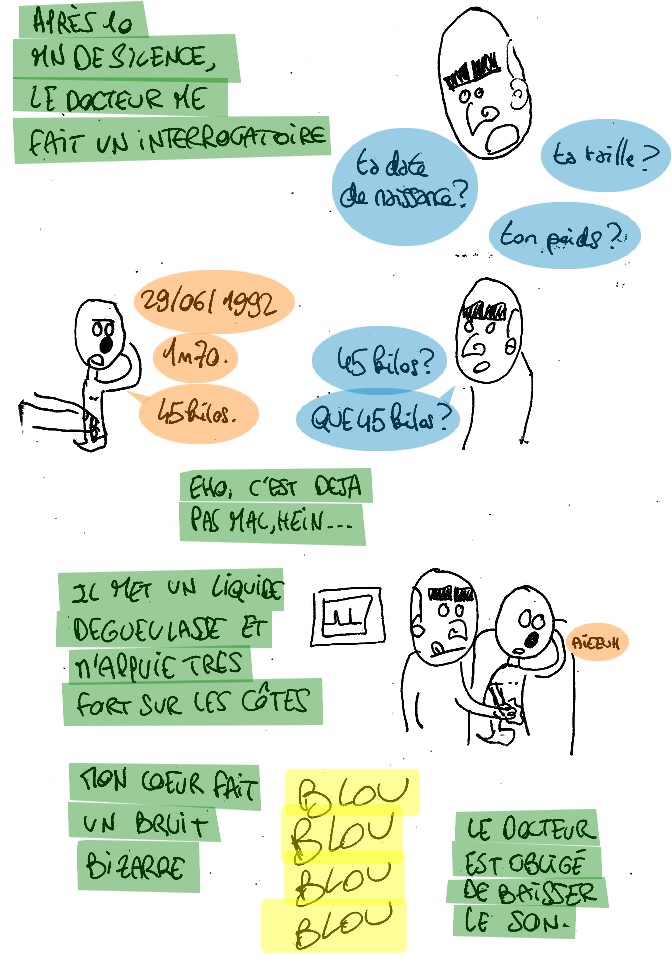 APRÈS 10
MN DE SILENCE,
LE DOCTEUR ME
FAIT UN INTERROGATOIRE
ta date
de naissance?
ta taille?
ton poids?
29/06/1992
1m70.
45 kilos.
45 kilos?
QUE 45 kilos?
EHO, C'EST DEJA
PAS MAL, HEIN...
IL MET UN LIQUIDE
DEGUEULASSE ET
M'APPUIE TRES
FORT SUR LES CÔTES
AIEEUH
MON COEUR FAIT
UN BRUIT
BIZARRE
BLOU
BLOU
BLOU
BLOU
LE DOCTEUR
EST OBLIGÉ
DE BAISSER
LE SON.